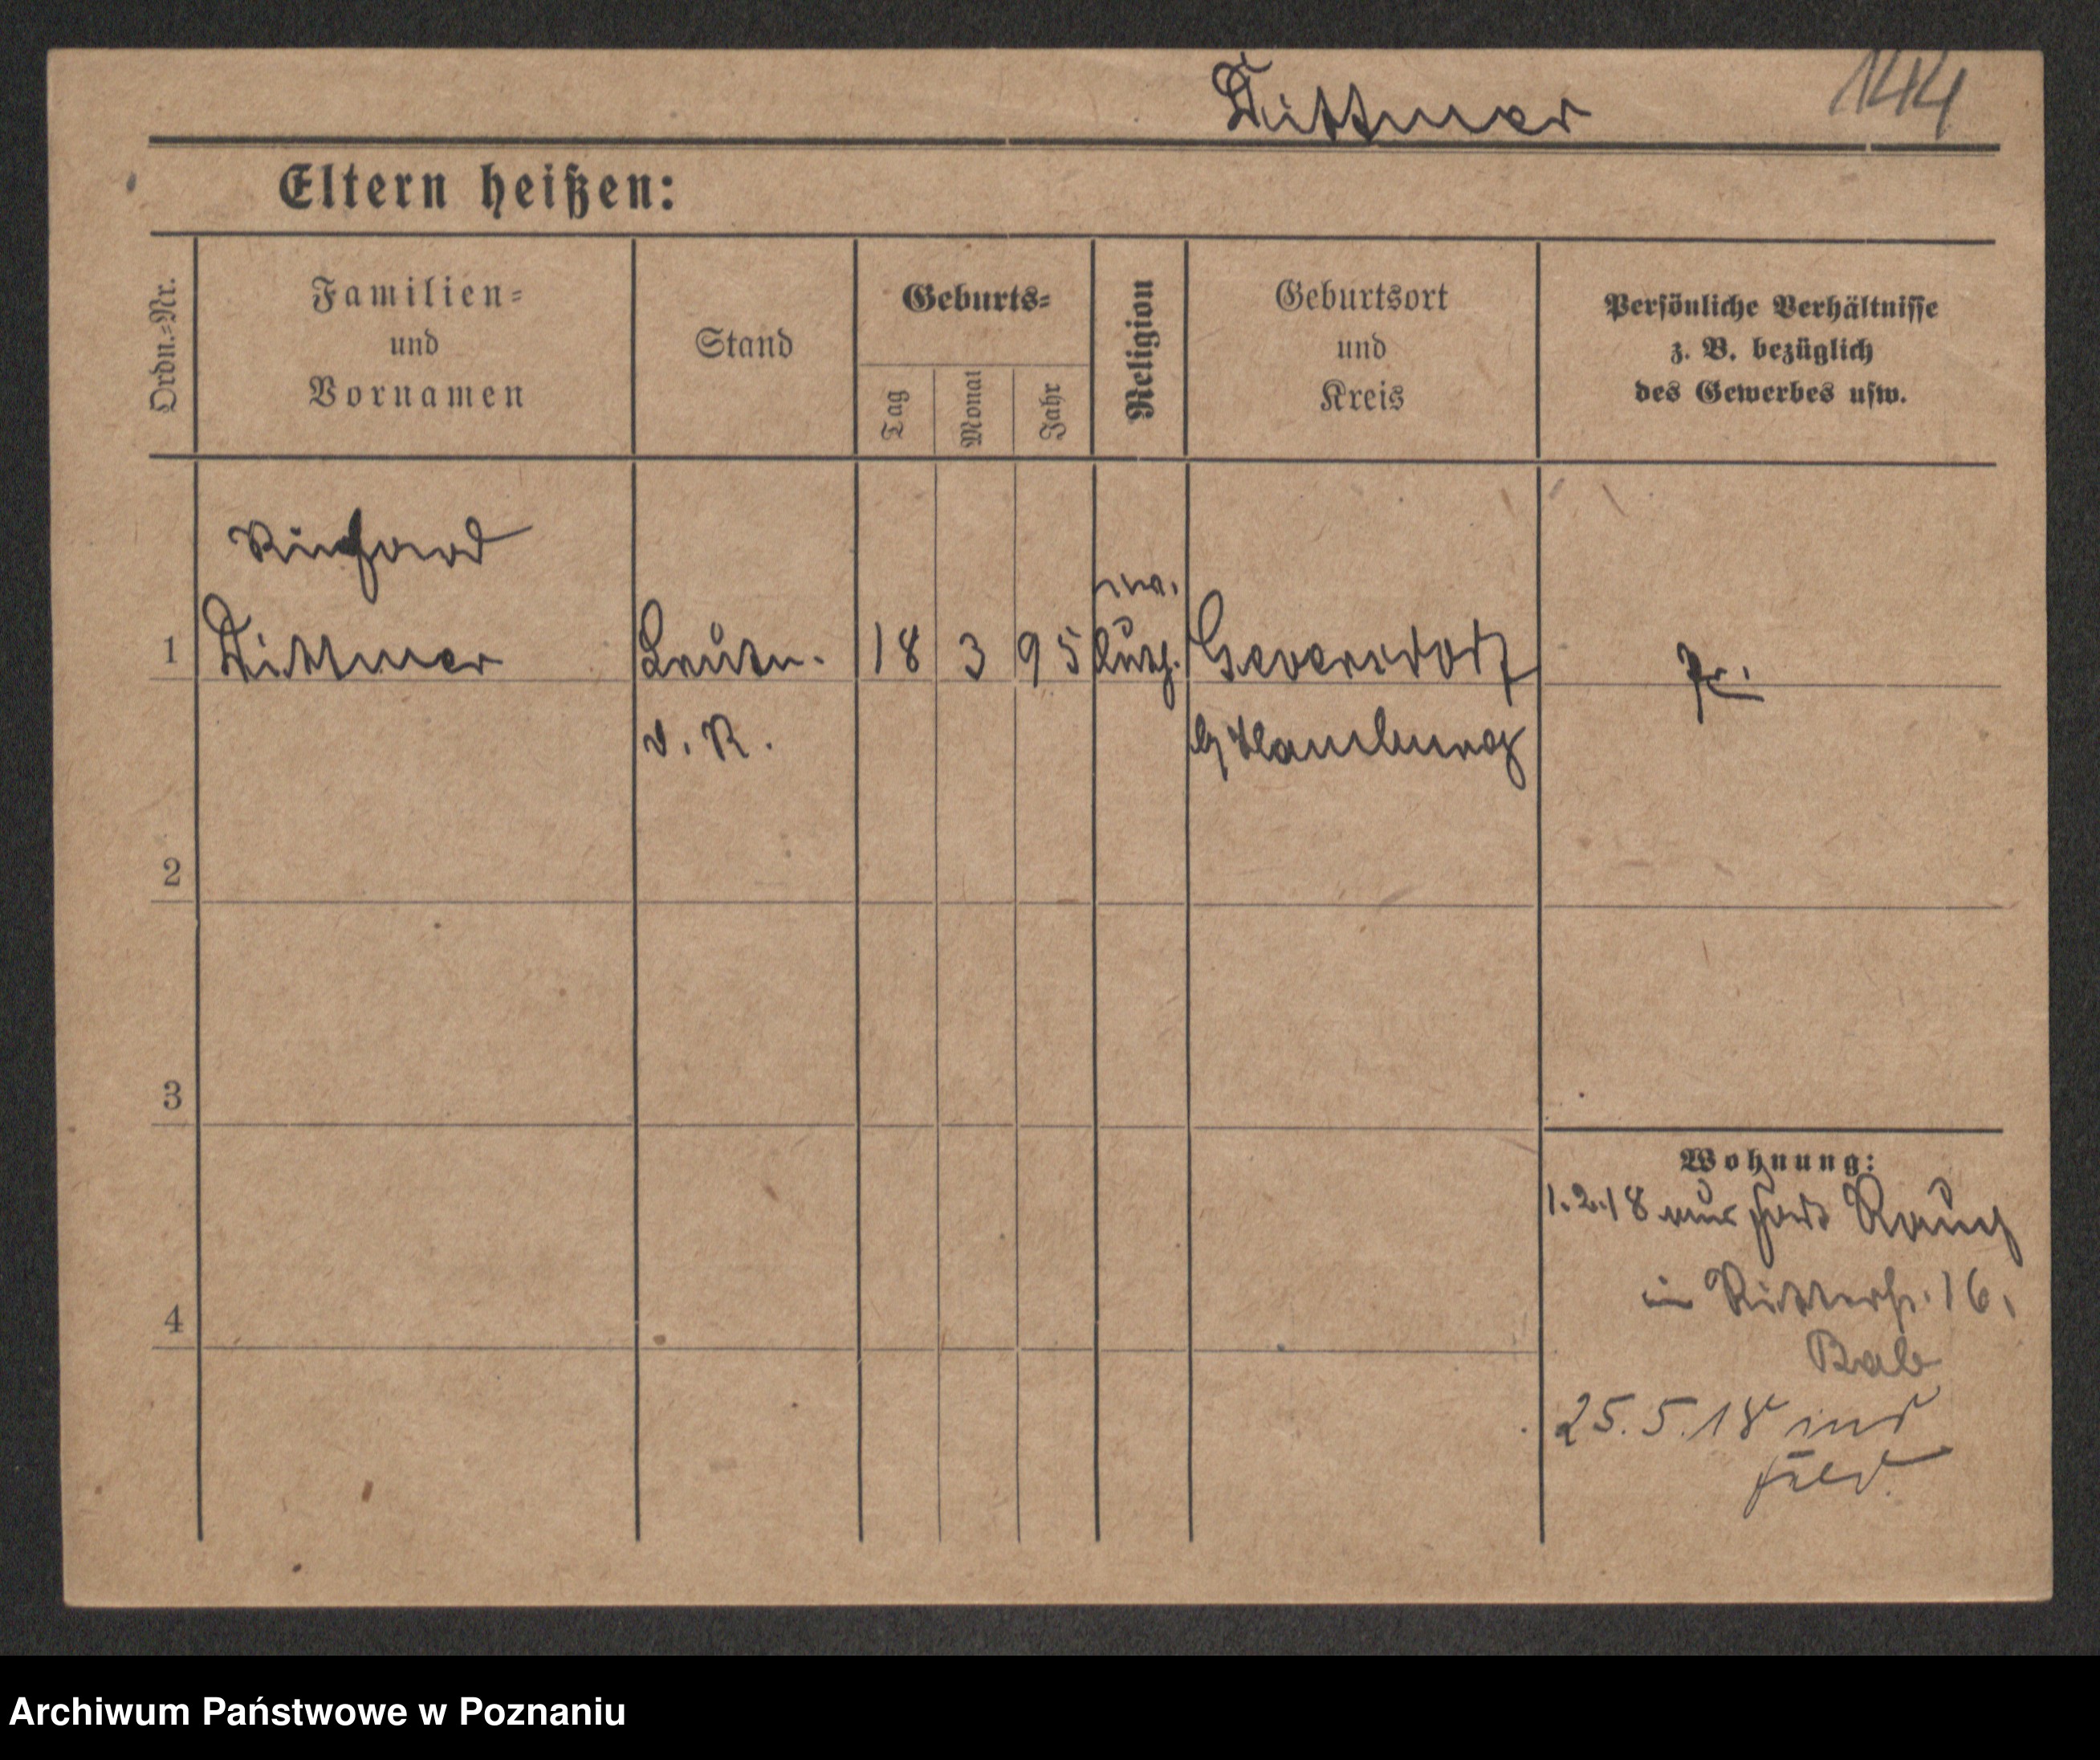 Dittmer
144
Eltern heißen:
Ordn.=Nr.
Familien=
und
Vornamen
Stand
Geburts=
Tag
Monat
Jahr
Religion
Geburtsort
und
Kreis
Persönliche Verhältnisse
z. B. bezüglich
des Gewerbes usw.
Richard
ev.
1 Dittmer Leutn. 18 3 95 luth. Geversdorf Pr.
d. R. b/ Hamburg
2
3
Wohnung:
1.2.18 aus Fort Rauch
in Ritterstr. 16.
4
25.5.18 ins
Feld.
Archiwum Państwowe w Poznaniu